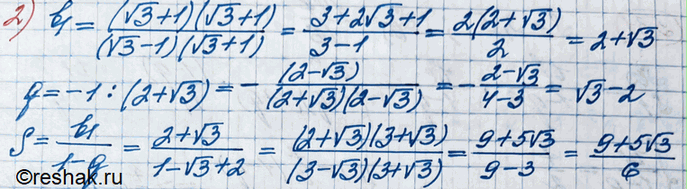 2) b₁ = (√3+1)(√3+1)/(√3-1)(√3+1) = 3+2√3+1/3-1 = 2(2+√3)/2 = 2+√3
q = -1 : (2+√3) = -(2-√3)/(2+√3)(2-√3) = -2-√3/4-3 = √3-2
S = b₁/1-q = 2+√3/1-√3+2 = (2+√3)(3+√3)/(3-√3)(3+√3) = 9+5√3/9-3 = 9+5√3/6
©reshak.ru